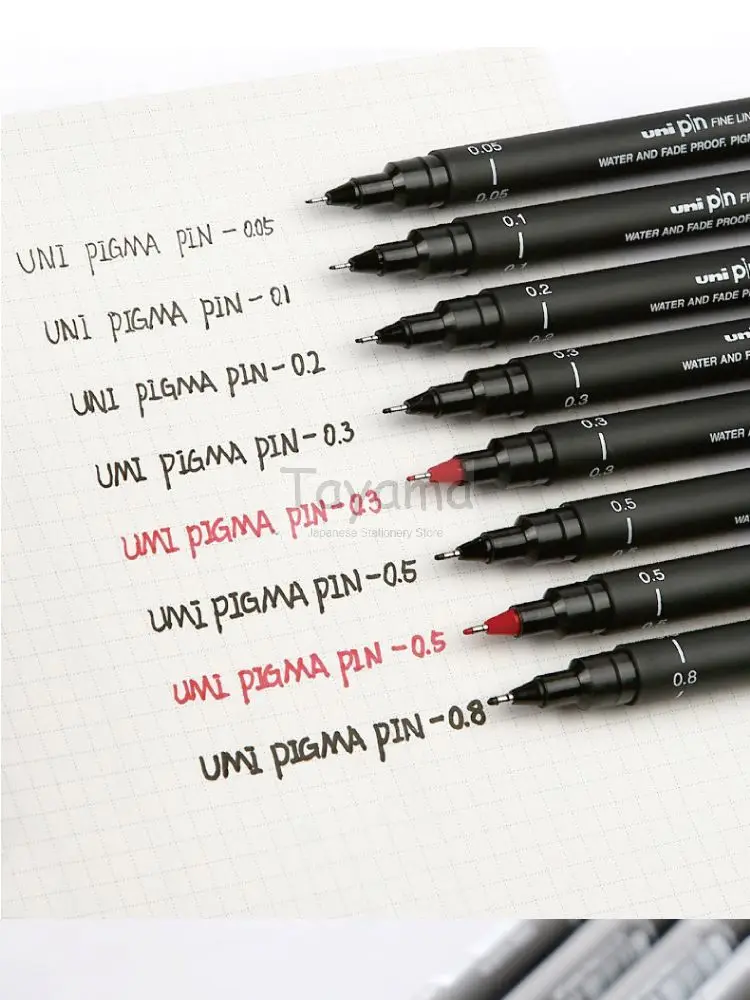 0.05
uni pin FINE LIN
WATER AND FADE PROOF. PIG
0.05
0.1
uni pin FI
WATER AND FADE PROOF
0.1
0.2
uni pin
WATER AND FADE P
0.2
0.3
un
WATER AND F
0.3
0.3
WATER A
0.3
0.5
WA
0.5
0.5
0.5
0.8
UNI PIGMA PIN - 0.05
UNI PIGMA PIN - 0.1
UNI PIGMA PIN - 0.2
UMI PIGMA PIN - 0.3
UMI PIGMA PIN - 0.3
UMI PIGMA PIN - 0.5
UMI PIGMA PIN - 0.5
UMI PIGMA PIN - 0.8
Tayama
Japanese Stationery Store